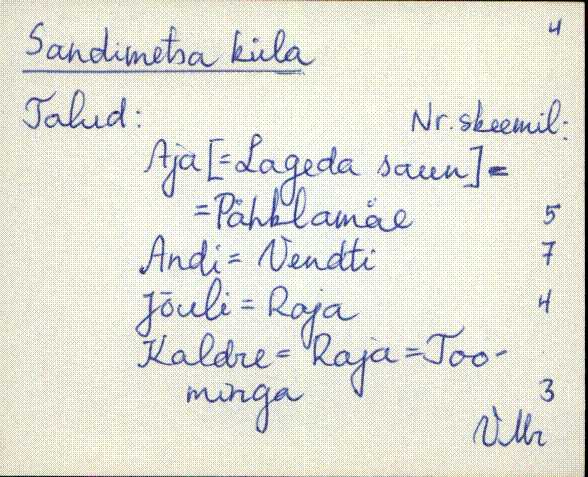 4
Sandimetsa küla
Talud: Nr. skeemil:
Aja [=Lageda saun] =
= Pähklamäe 5
Andi = Vendti 7
Jõuli = Raja 4
Kaldre = Raja = Too-
minga 3